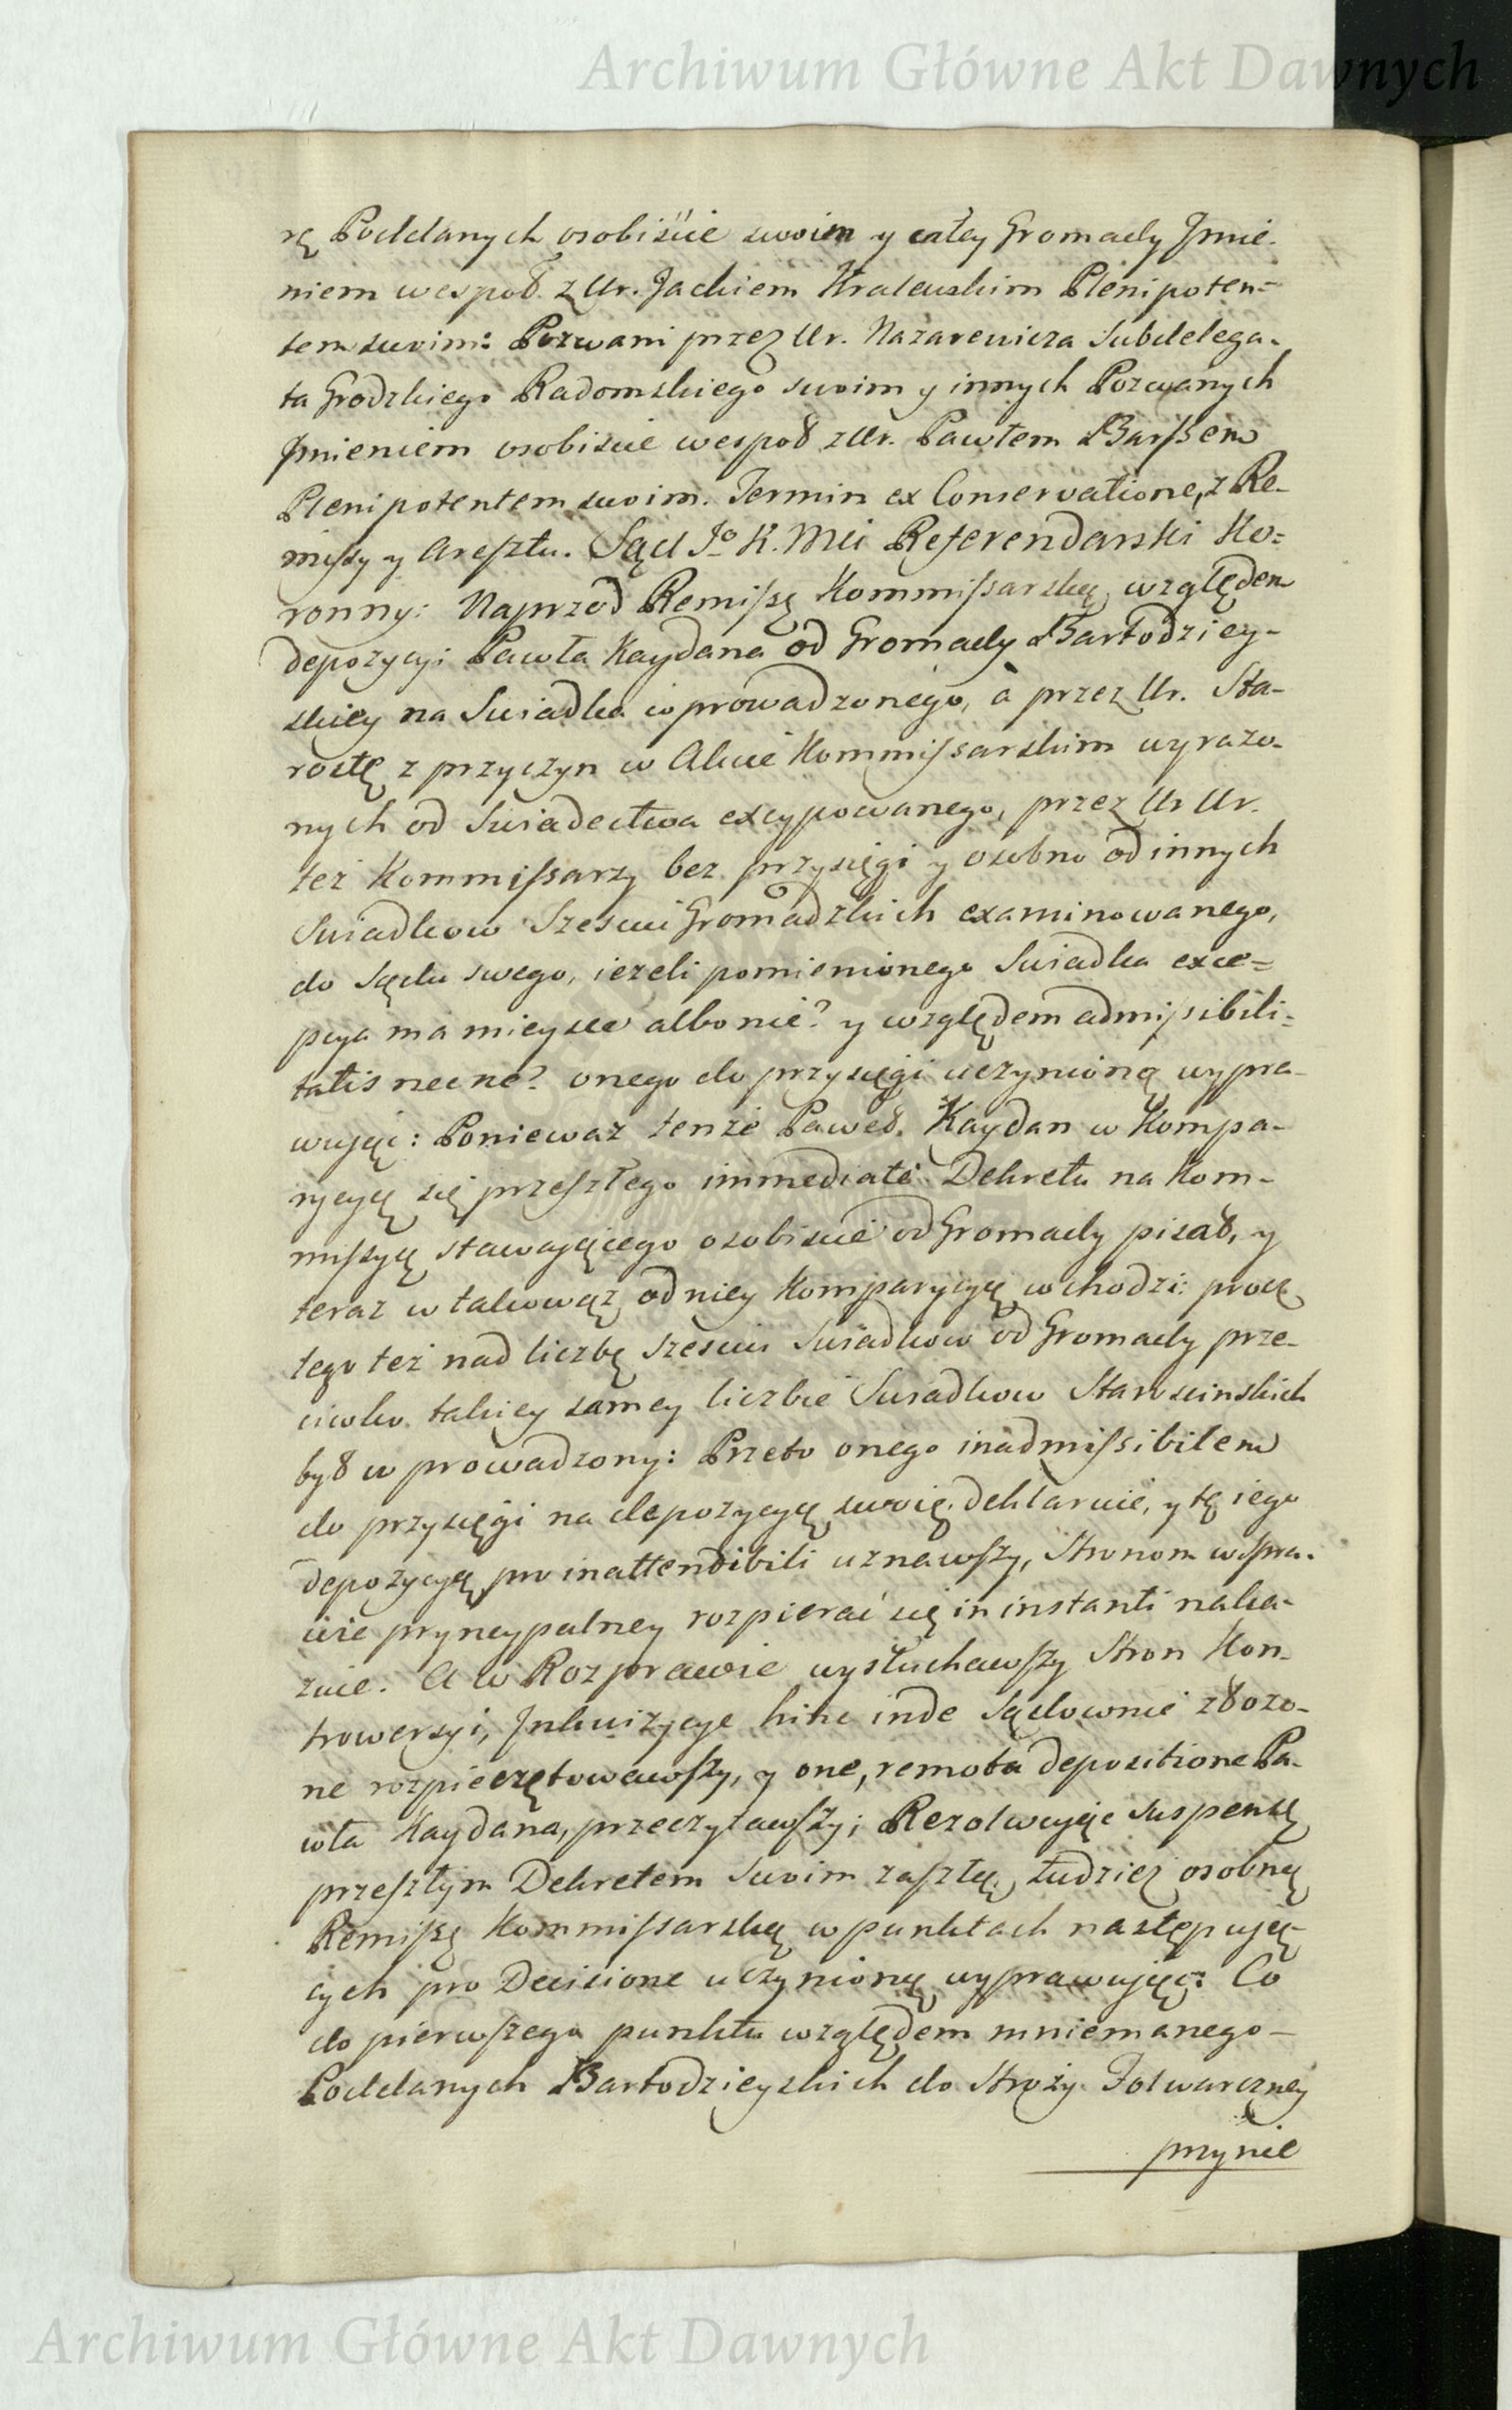 Archiwum Główne Akt Dawnych
rą Poddanych osobiście swoim y całey Gromady Jmie-
niem wespoł z Ur. Jackiem Kralewskim Plenipoten=
tem swoim: Pozwani przez Ur. Nazarewicza Subdelega-
ta Grodzkiego Radomskiego swoim y innych Pozwanych
Jmieniem osobiscie wespoł z Ur. Pawłem Barssem
Plenipotentem swoim. Termin ex Conservatione, z Re-
missy y Aresztu. Sąd Jo K. Mci Referendarski Ko=
ronny: Naprzod Remissę Kommissarską względem
depozycyi Pawła Kaydana od Gromady Bartodziey-
skiey na Swiadka wprowadzonego, a przez Ur. Sta-
rostę z przyczyn w Akcie Kommissarskim wyrazo-
nych od Swiadectwa excypowanego, przez Ur Ur.
też Kommissarzy bez przysięgi y osobno od innych
Swiadkow Szesciu Gromadzkich examinowanego,
do Sądu swego, ieżeli pomienionego Swiadka exce=
pcya ma mieysce albo nie? y względem admissibili=
tatis necne? onego do przysięgi uczynioną wypra-
wując: Ponieważ tenże Paweł Kaydan w Kompa-
rycyą się przeszłego immediate Dekretu na Kom-
missyą stawaiącego osobiscie od Gromady pisał, y
teraz w takowąż od niey Komparycyą wchodzi: procz
tego też nad liczbę szesciu Swiadkow od Gromady prze-
ciwko takiey samey liczbie Swiadkow Starościnskich
był wprowadzony: Przeto onego inadmissibilem
do przysięgi na depozycyą swoię deklaruie, y tę iego
depozycyą pro inattendibili uznawszy, Stronom w spra-
wie pryncypalney rozpierać się in instanti naka-
zuie. A w Rozprawie wysłuchawszy Stron Kon-
trowersyi, Jnkwizycye hinc inde sądownie złożo-
ne rozpieczętowawszy, y one, remota depositione Pa-
wła Kaydana, przeczytawszy; Rezolwując suspensę
przeszłym Dekretem swoim zaszłą, tudzież osobną
Remissę Kommissarską w punktach następują-
cych pro Decisione uczynioną wyprawując: Co
do pierwszego punktu względem mniemanego
Poddanych Bartodzieyskich do Stroży Folwarczney
przynie
Archiwum Główne Akt Dawnych